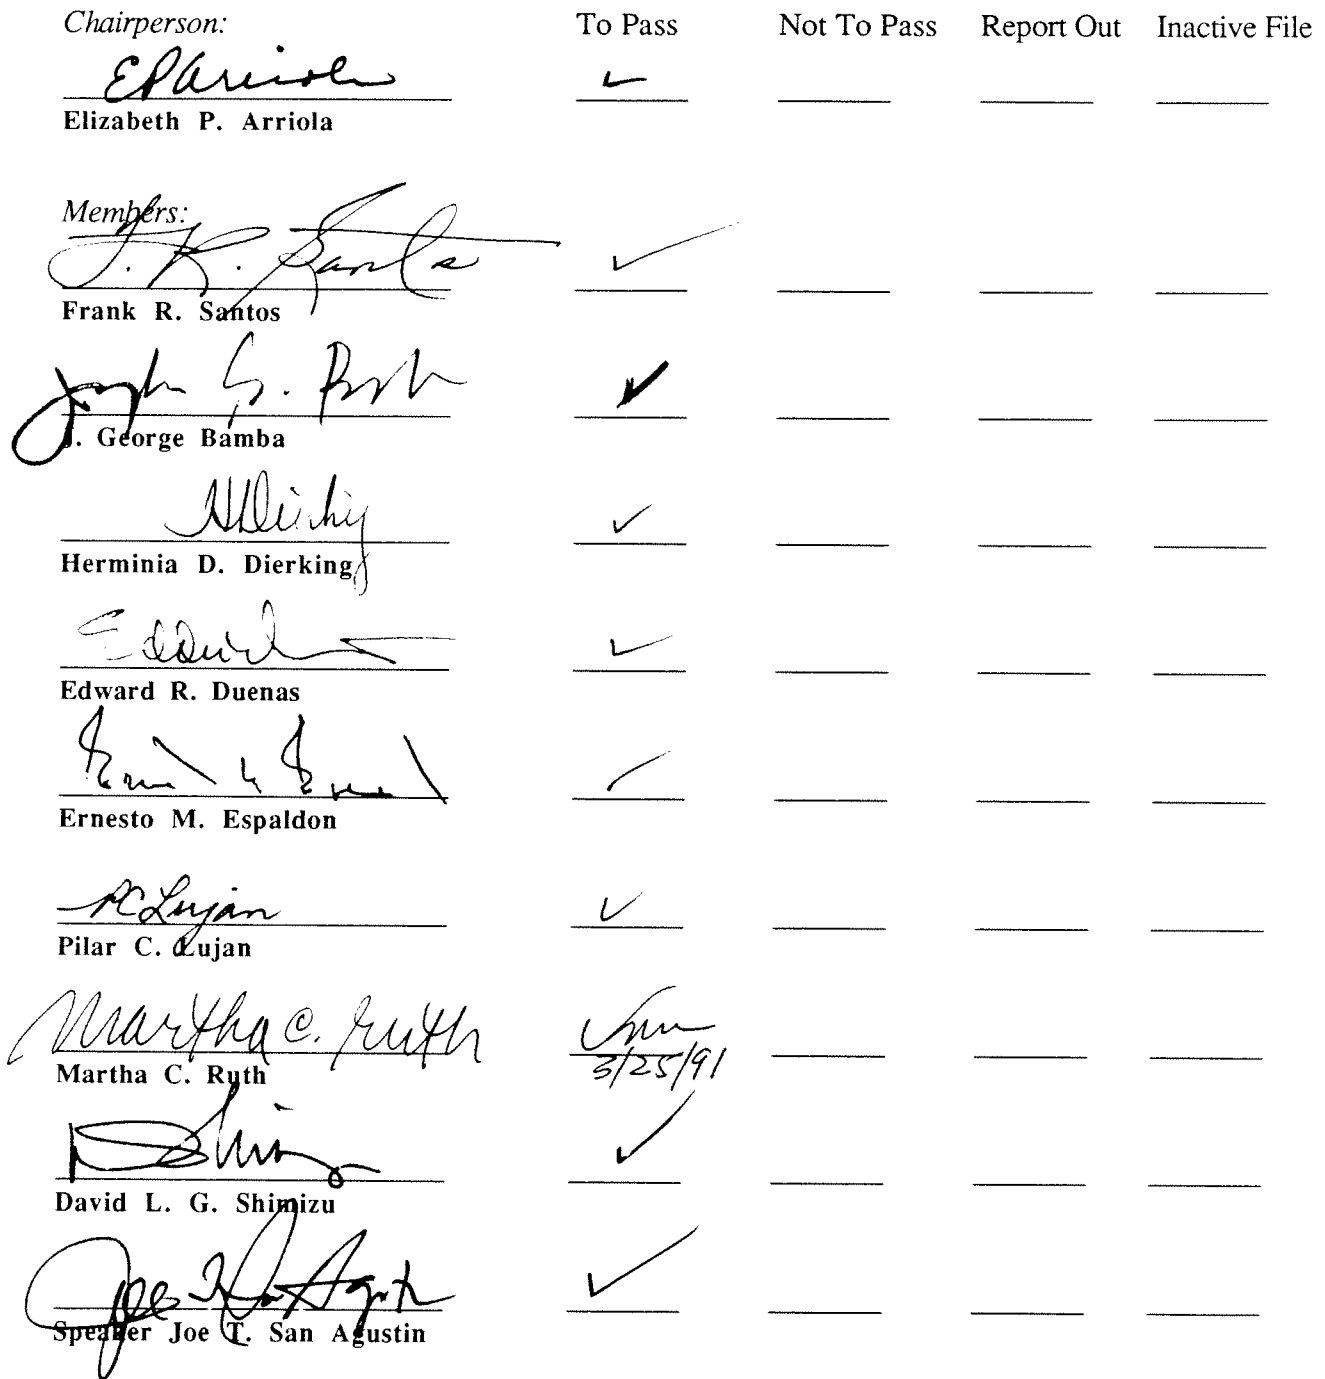 Chairperson: To Pass Not To Pass Report Out Inactive File
EPArriola ✓
Elizabeth P. Arriola
Members:
F. R. Santos ✓
Frank R. Santos
Joseph G. Bamba ✓
J. George Bamba
HDierking ✓
Herminia D. Dierking
EdDuenas ✓
Edward R. Duenas
✓
Ernesto M. Espaldon
PC Lujan ✓
Pilar C. Lujan
Martha C. Ruth ✓
3/25/91
Martha C. Ruth
DShimizu ✓
David L. G. Shimizu
Joe T. San Agustin ✓
Speaker Joe T. San Agustin